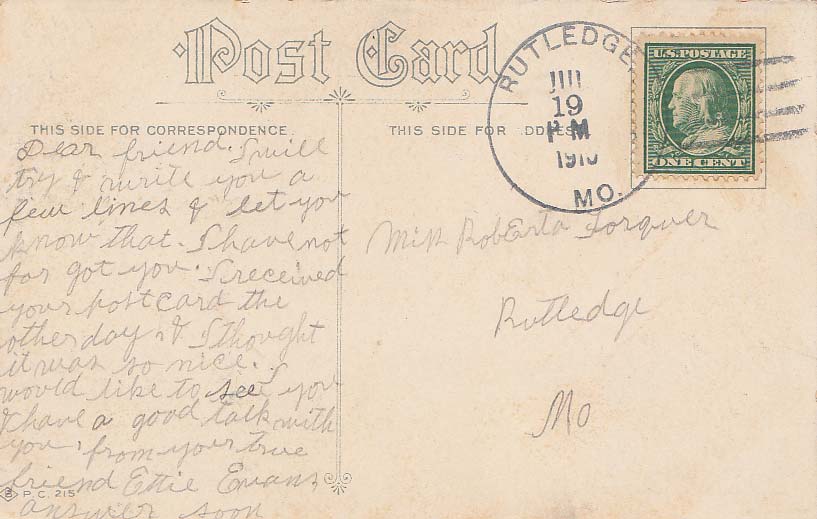 Post Card
THIS SIDE FOR CORRESPONDENCE.
THIS SIDE FOR DDRESS
RUTLEDGE
JUL
19
P M
1910
MO.
U.S. POSTAGE
ONE CENT
Dear friend. I will
try & write you a
few lines & let you
know that. I have not
for got you. I received
your postcard the
other day & I thought
it was so nice. I
would like to see you
& have a good talk with
you. from your true
friend Ettie Evans
answer soon
Miss RobErta
Rutledge
Mo
P.C. 215